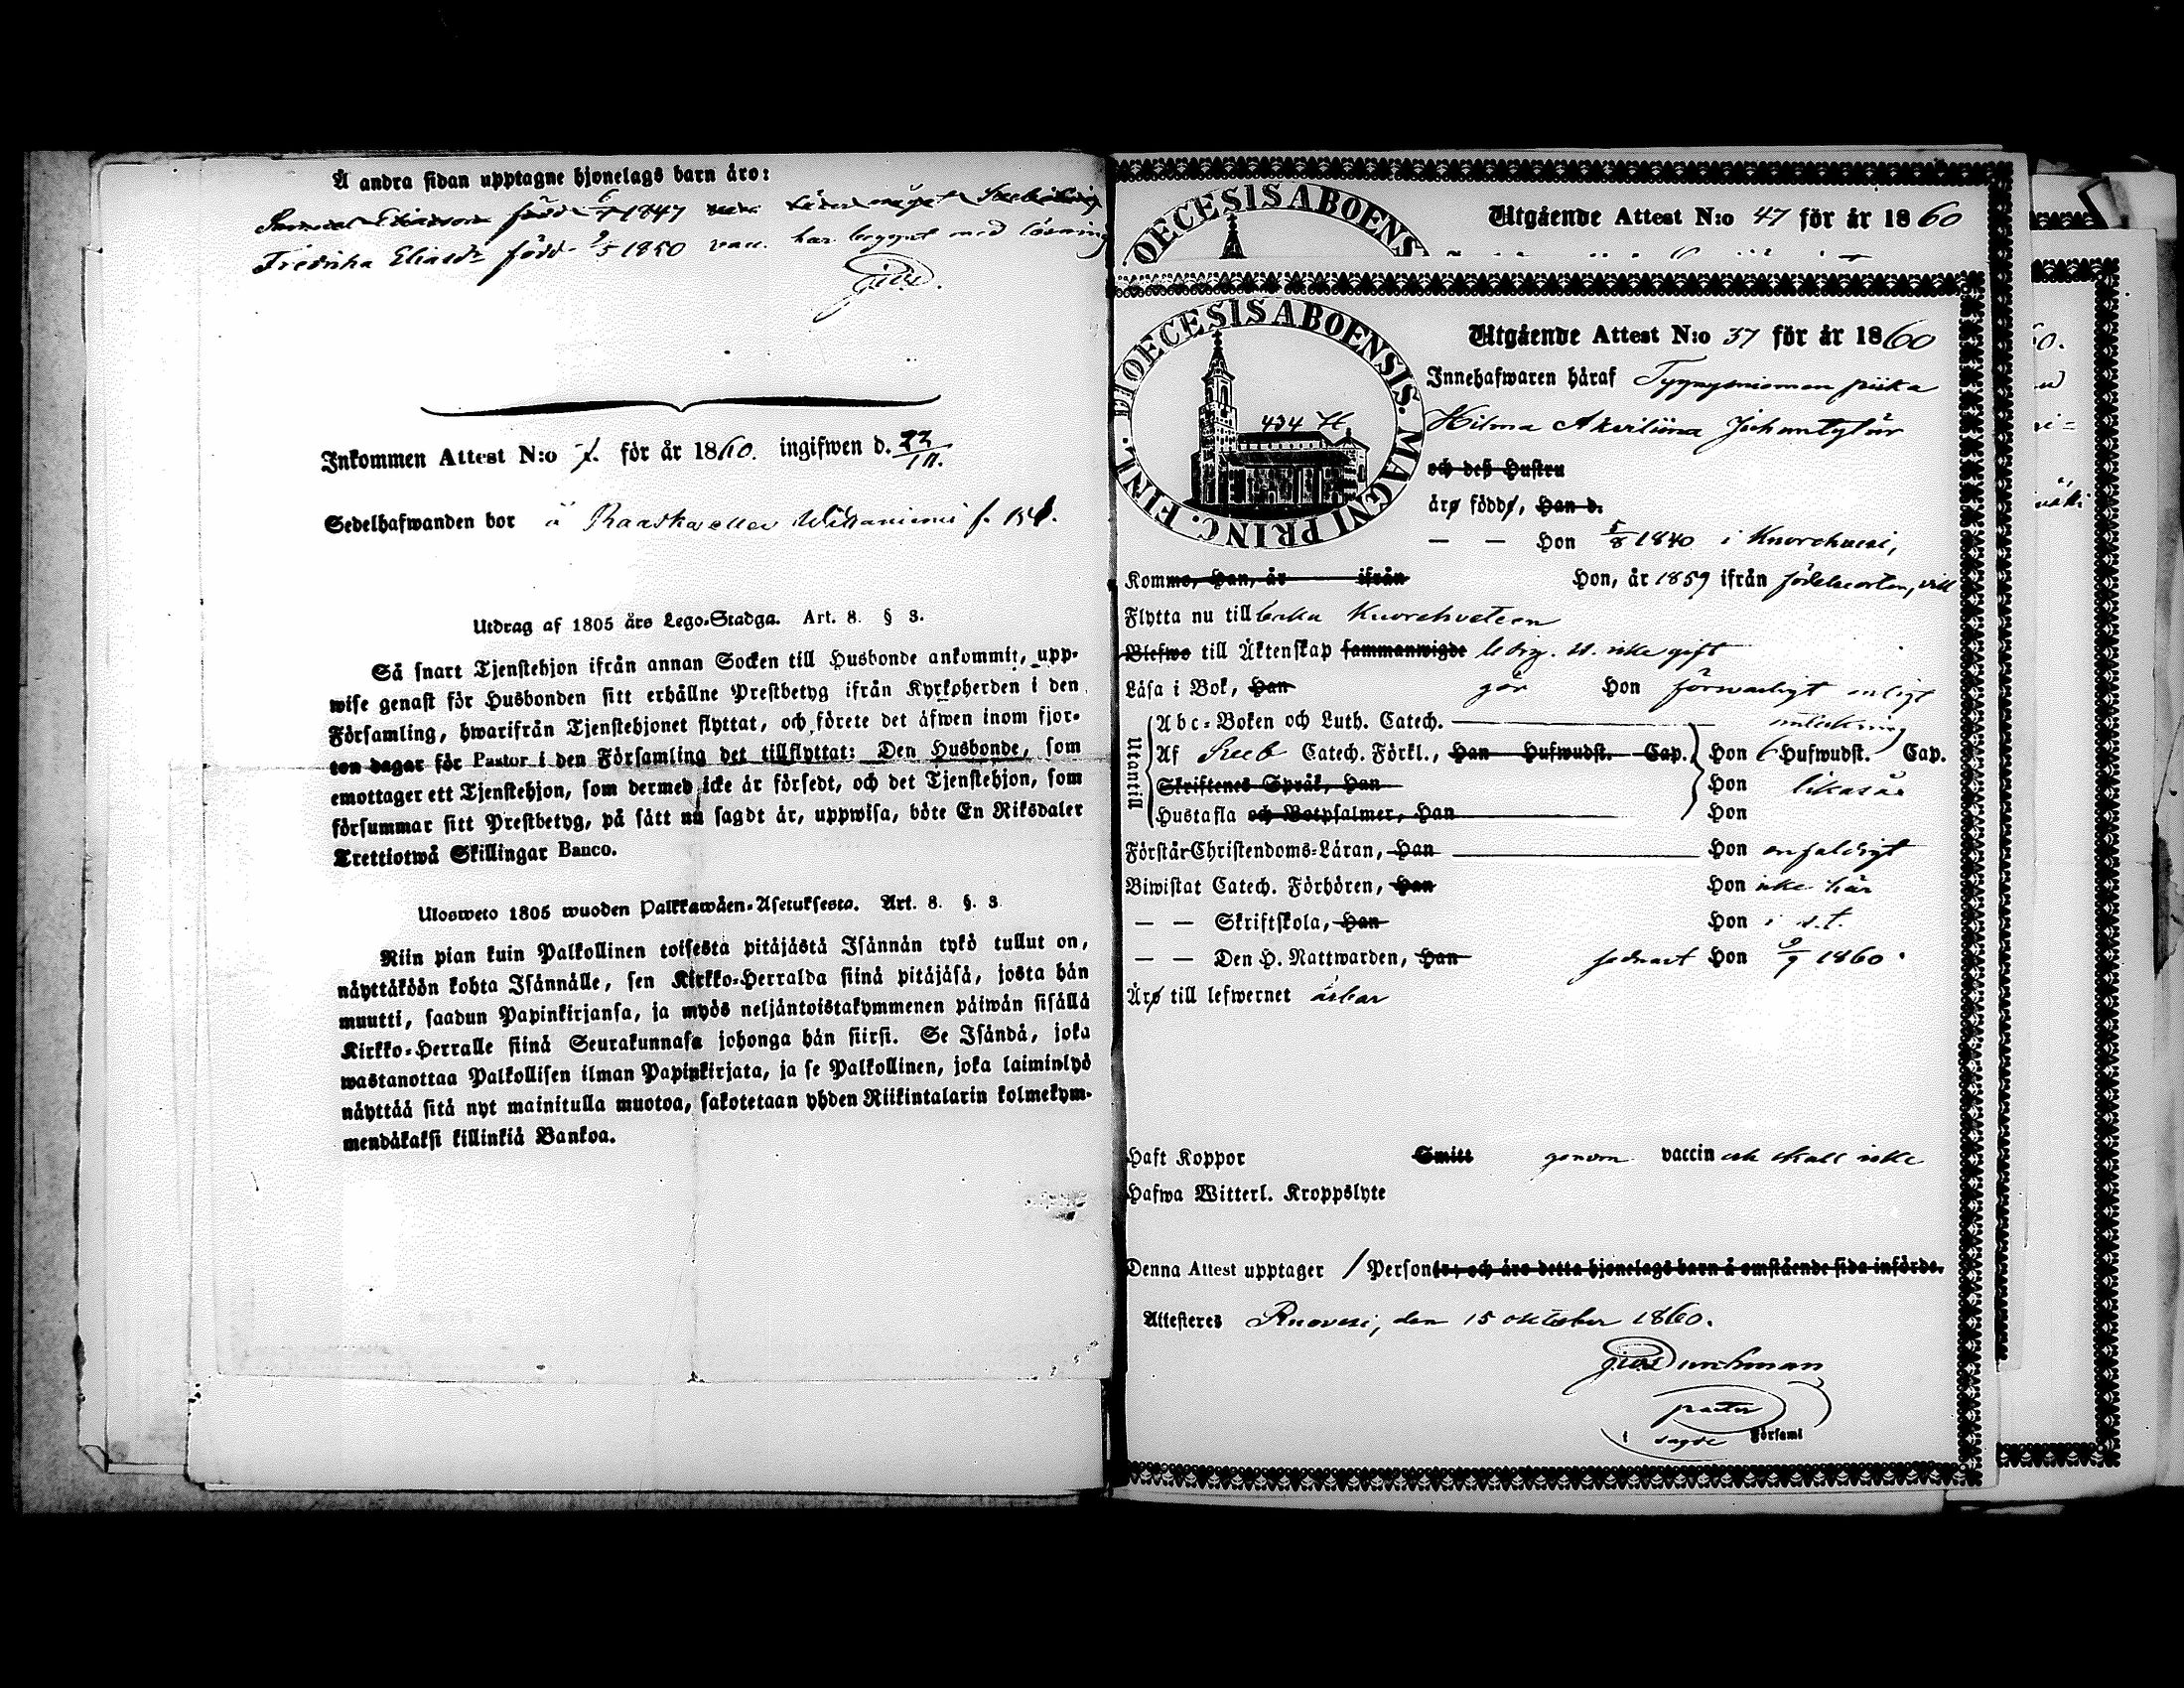 Å andra sidan upptagne hjonelags barn äro:
Samuel Eliasson född 6/4 1847
Fredrika Eliasdr född 9/5 1850 vacc. har begynt med läsning
Inkommen Attest N:o 7. för år 1860. ingifwen d. 23/10.
Sedelhafwanden bor å Raaska eller f. 158.
Utdrag af 1805 års Lego-Stadga. Art. 8. § 3.
Så snart Tjenstehjon ifrån annan Socken till Husbonde ankommit, upp-
wise genast för Husbonden sitt erhållne Prestbetyg ifrån Kyrkoherden i den
Församling, hwarifrån Tjenstehjonet flyttat, och förete det äfwen inom fjor-
ton dagar för Pastor i den Församling det tillflyttat: Den Husbonde, som
emottager ett Tjenstehjon, som dermed icke är försedt, och det Tjenstehjon, som
försummar sitt Prestbetyg, på sätt nu sagdt är, uppwisa, böte En Riksdaler
Trettiotwå Skillingar Banco.
Ulosweto 1805 wuoden Palkkawäen-Asetuksesta. Art. 8. §. 3
Niin pian kuin Palkollinen toisesta pitäjästä Isännän tykö tullut on,
näyttäköön kohta Isännälle, sen Kirkko-Herralda siinä pitäjäsä, josta hän
muutti, saadun Papinkirjansa, ja myös neljäntoistakymmenen päiwän sisällä
Kirkko-Herralle siinä Seurakunnasa johonga hän siirsi. Se Isändä, joka
wastanottaa Palkollisen ilman Papinkirjata, ja se Palkollinen, joka laiminlyö
näyttää sitä nyt mainitulla muotoa, sakotetaan yhden Riikintalarin kolmekym-
mendäkaksi killinkiä Bankoa.
OECESIS ABOENS
Utgående Attest N:o 47 för år 1860
DIOECESIS ABOENSIS. MAGNI PRINC. FINL.
434
Utgående Attest N:o 37 för år 1860
Innehafwaren häraf piika
Hilma Akviliina
och deß Hustru
äro född, Han d.
— — Hon 5/8 1840 i Kuorehvesi,
Kommo, Han, år ifrån Hon, år 1859 ifrån födelseorten, vill
Flytta nu tillbaka
Blefwo till Äktenskap sammanwigde ledig. icke gift
Läsa i Bok, Han gör Hon försvarligt enligt
Utantill
Abc-Boken och Luth. Catech. anteckning
Af Catech. Förkl., Han Hufwudst. Cap. Hon 6 Hufwudst. Cap.
Skriftenes Språk, Han Hon likaså
Hustafla och Botpsalmer, Han Hon
Förstår Christendoms-Läran, Han Hon enfaldigt
Biwistat Catech. Förhören, Han Hon icke här
— — Skriftskola, Han Hon i s.t.
— — Den H. Nattwarden, Han sednast Hon 9/9 1860.
Äro till lefwernet ärbar
Haft Koppor Smitt genom vaccin och skall icke
Hafwa Witterl. Kroppslyte
Denna Attest upptager 1 Personer, och äro detta hjonelags barn å omstående sida införde.
Attesteras Ruovesi, den 15 oktober 1860.
pastor
i sagde Församl